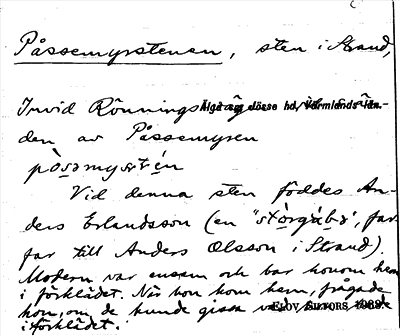 Påssemyrstenen, sten i Strand,
Invid Rönnings väg
Älgå sn, Jösse hd, Värmlands län.
den av Påssemyren
Vid denna sten föddes An-
ders Erlandsson (en "stórgúbə", far-
far till Anders Olsson i Strand).
Modern var ensam och bar honom hem
i förklädet. När hon kom hem, frågade
hon, om de kunde gissa vad hon hade
ELOV SILFORS 1939.
i förklädet.